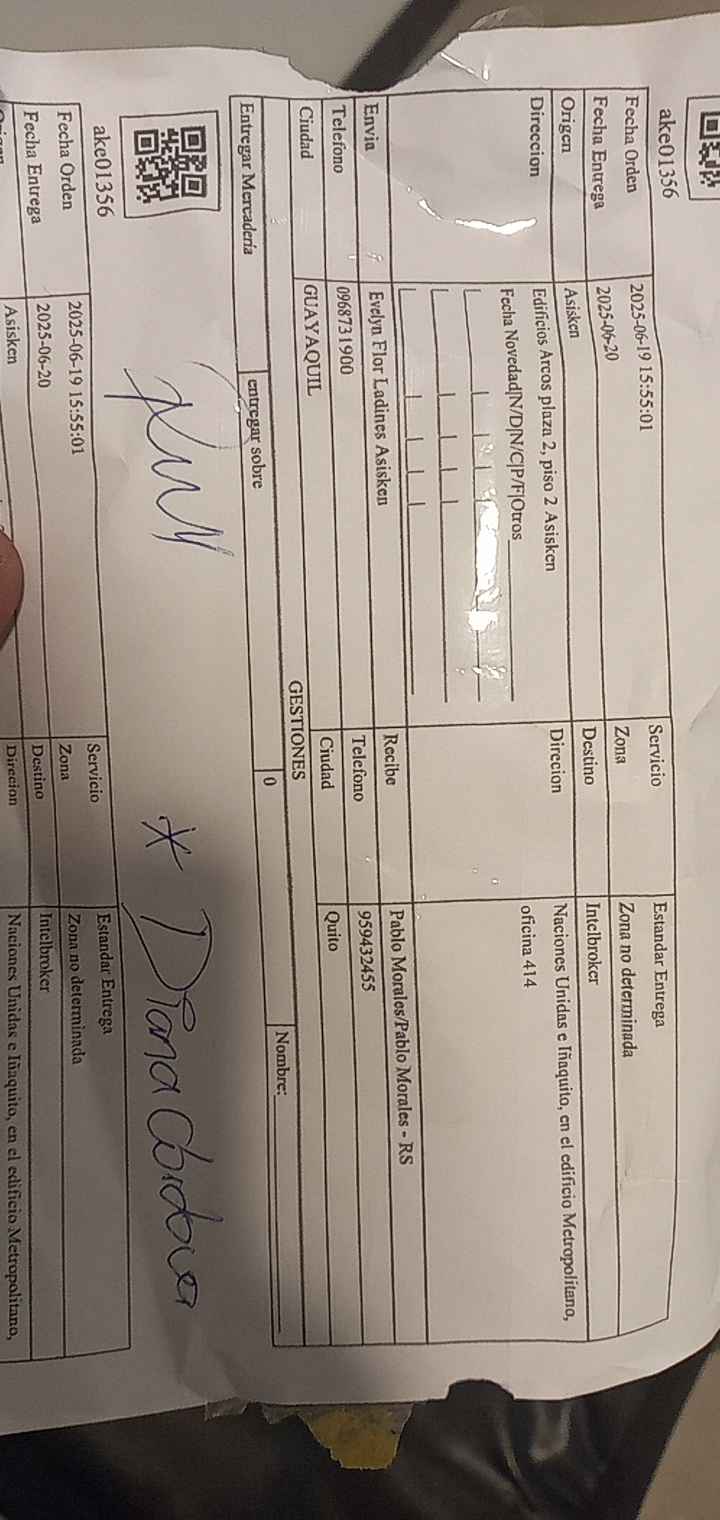 ake01356
Fecha Orden 2025-06-19 15:55:01 Servicio Estandar Entrega
Fecha Entrega 2025-06-20 Zona Zona no determinada
Origen Asisken Destino Intelbroker
Direccion Edificios Arcos plaza 2, piso 2 Asisken Direcion Naciones Unidas e Iñaquito, en el edificio Metropolitano,
oficina 414
Fecha Novedad|N/D|N/C|P/F|Otros
Envia Evelyn Flor Ladines Asisken Recibe Pablo Morales/Pablo Morales - RS
Telefono 0968731900 Telefono 959432455
Ciudad GUAYAQUIL Ciudad Quito
GESTIONES
Entregar Mercadería entregar sobre 0 Nombre:
* Diana Cordova
ake01356
Fecha Orden 2025-06-19 15:55:01 Servicio Estandar Entrega
Fecha Entrega 2025-06-20 Zona Zona no determinada
Origen Asisken Destino Intelbroker
Direcion Naciones Unidas e Iñaquito, en el edificio Metropolitano,